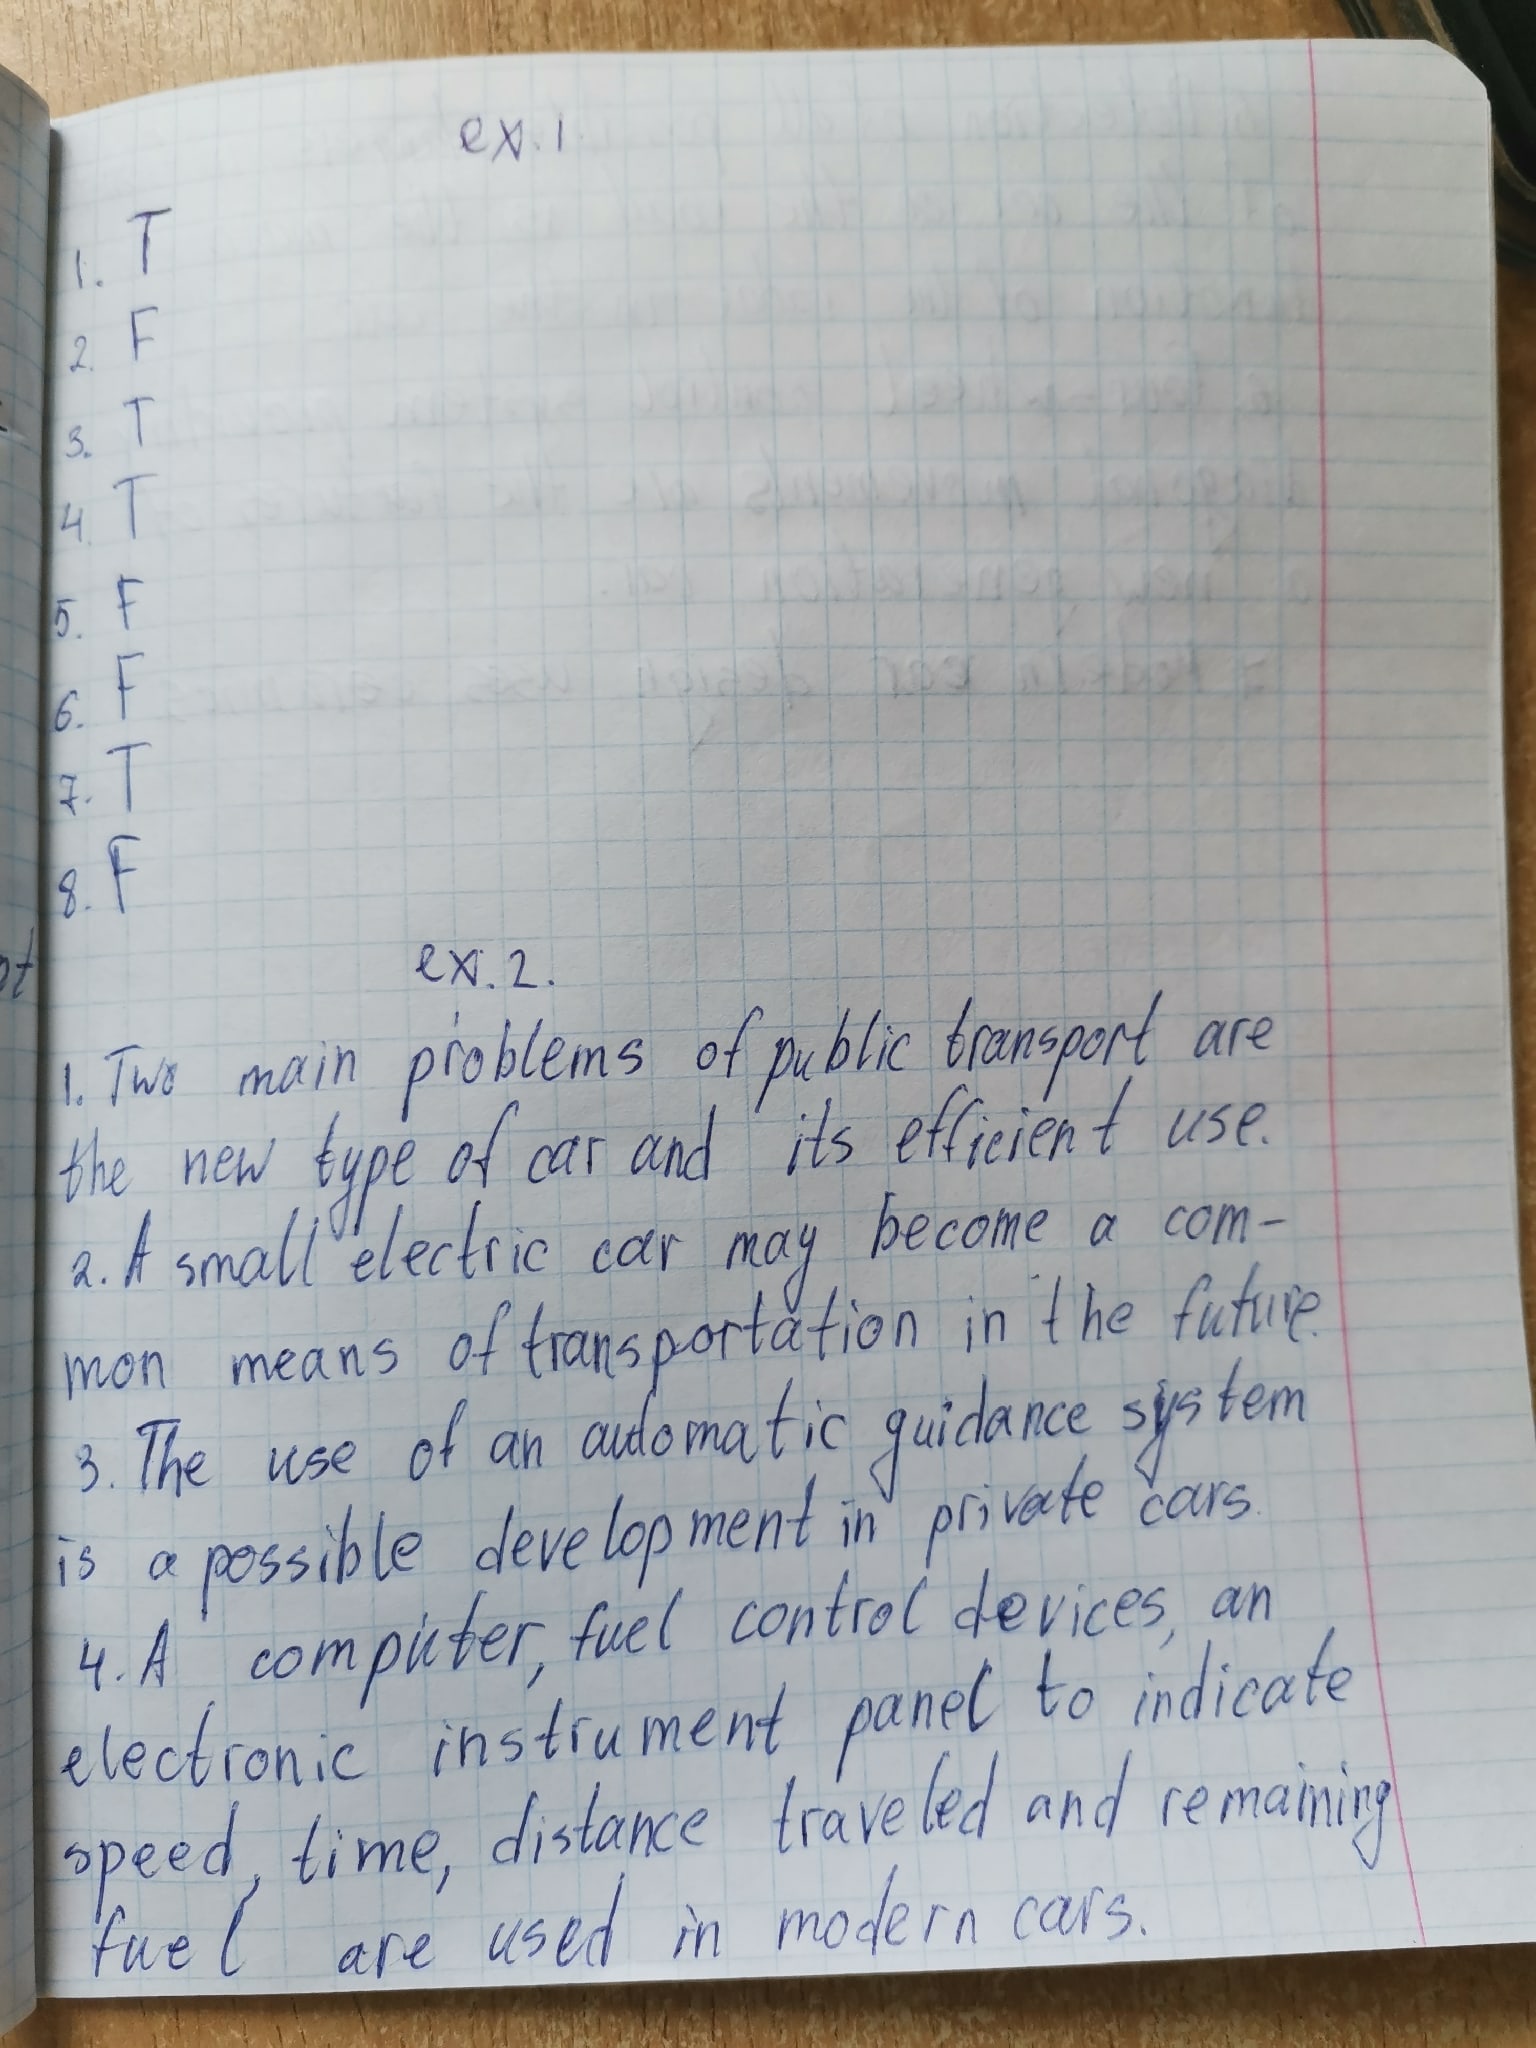 ex. 1.
1. T
2. F
3. T
4. T
5. F
6. F
7. T
8. F
ex. 2.
1. Two main problems of public transport are
the new type of car and its efficient use.
2. A small electric car may become a com-
mon means of transportation in the future.
3. The use of an automatic guidance system
is a possible development in private cars.
4. A computer, fuel control devices, an
electronic instrument panel to indicate
speed, time, distance traveled and remaining
fuel are used in modern cars.